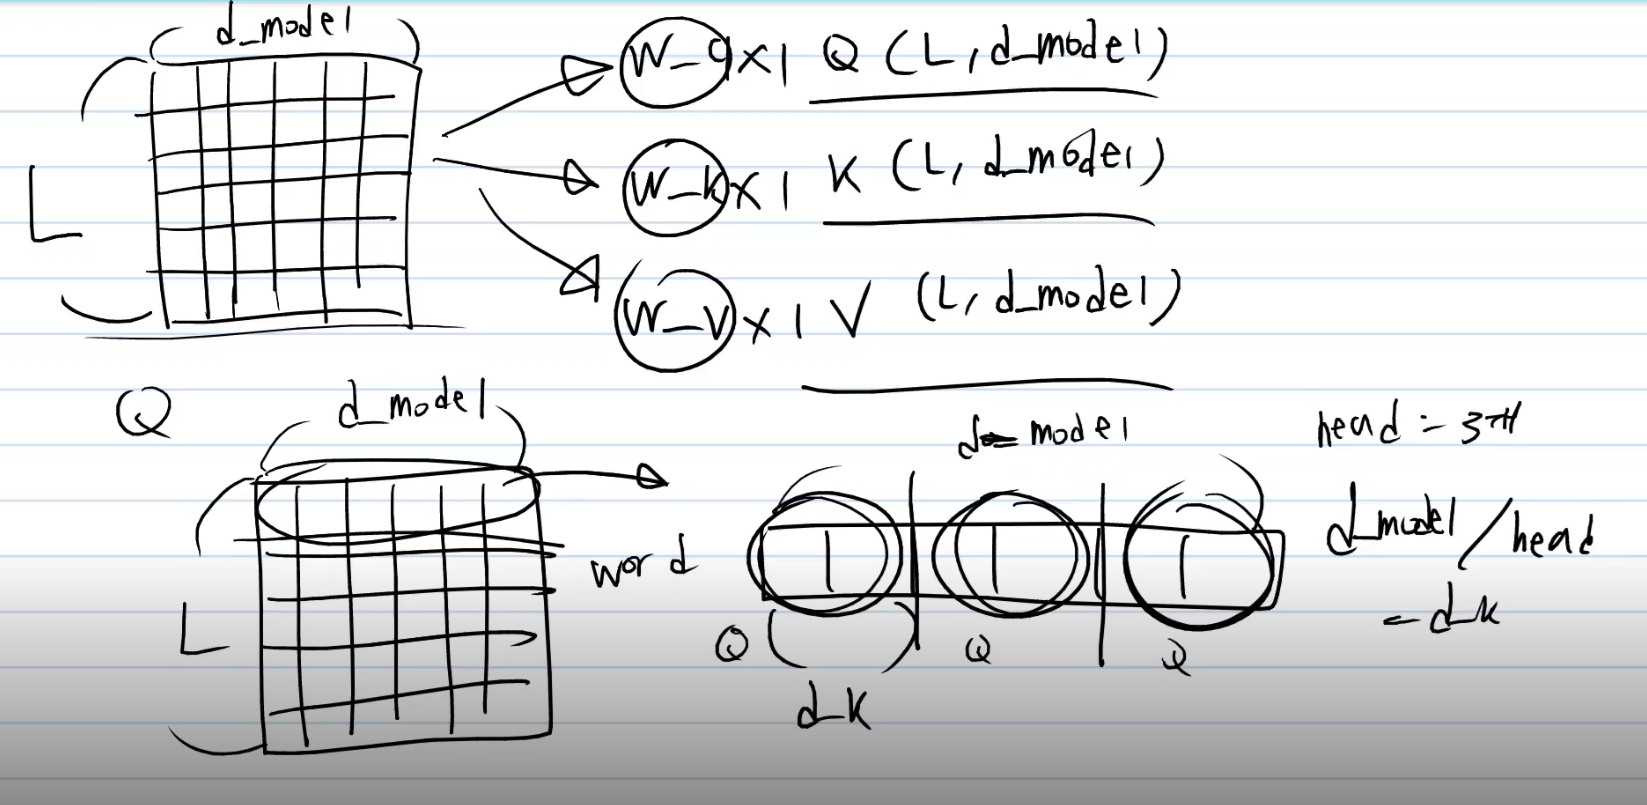 d_model
L
W_q x 1 Q (L, d_model)
W_k x 1 K (L, d_model)
W_v x 1 V (L, d_model)
Q
d_model
L
word
d_model
Q Q Q
d_k
head = 3개
d_model / head
= d_k